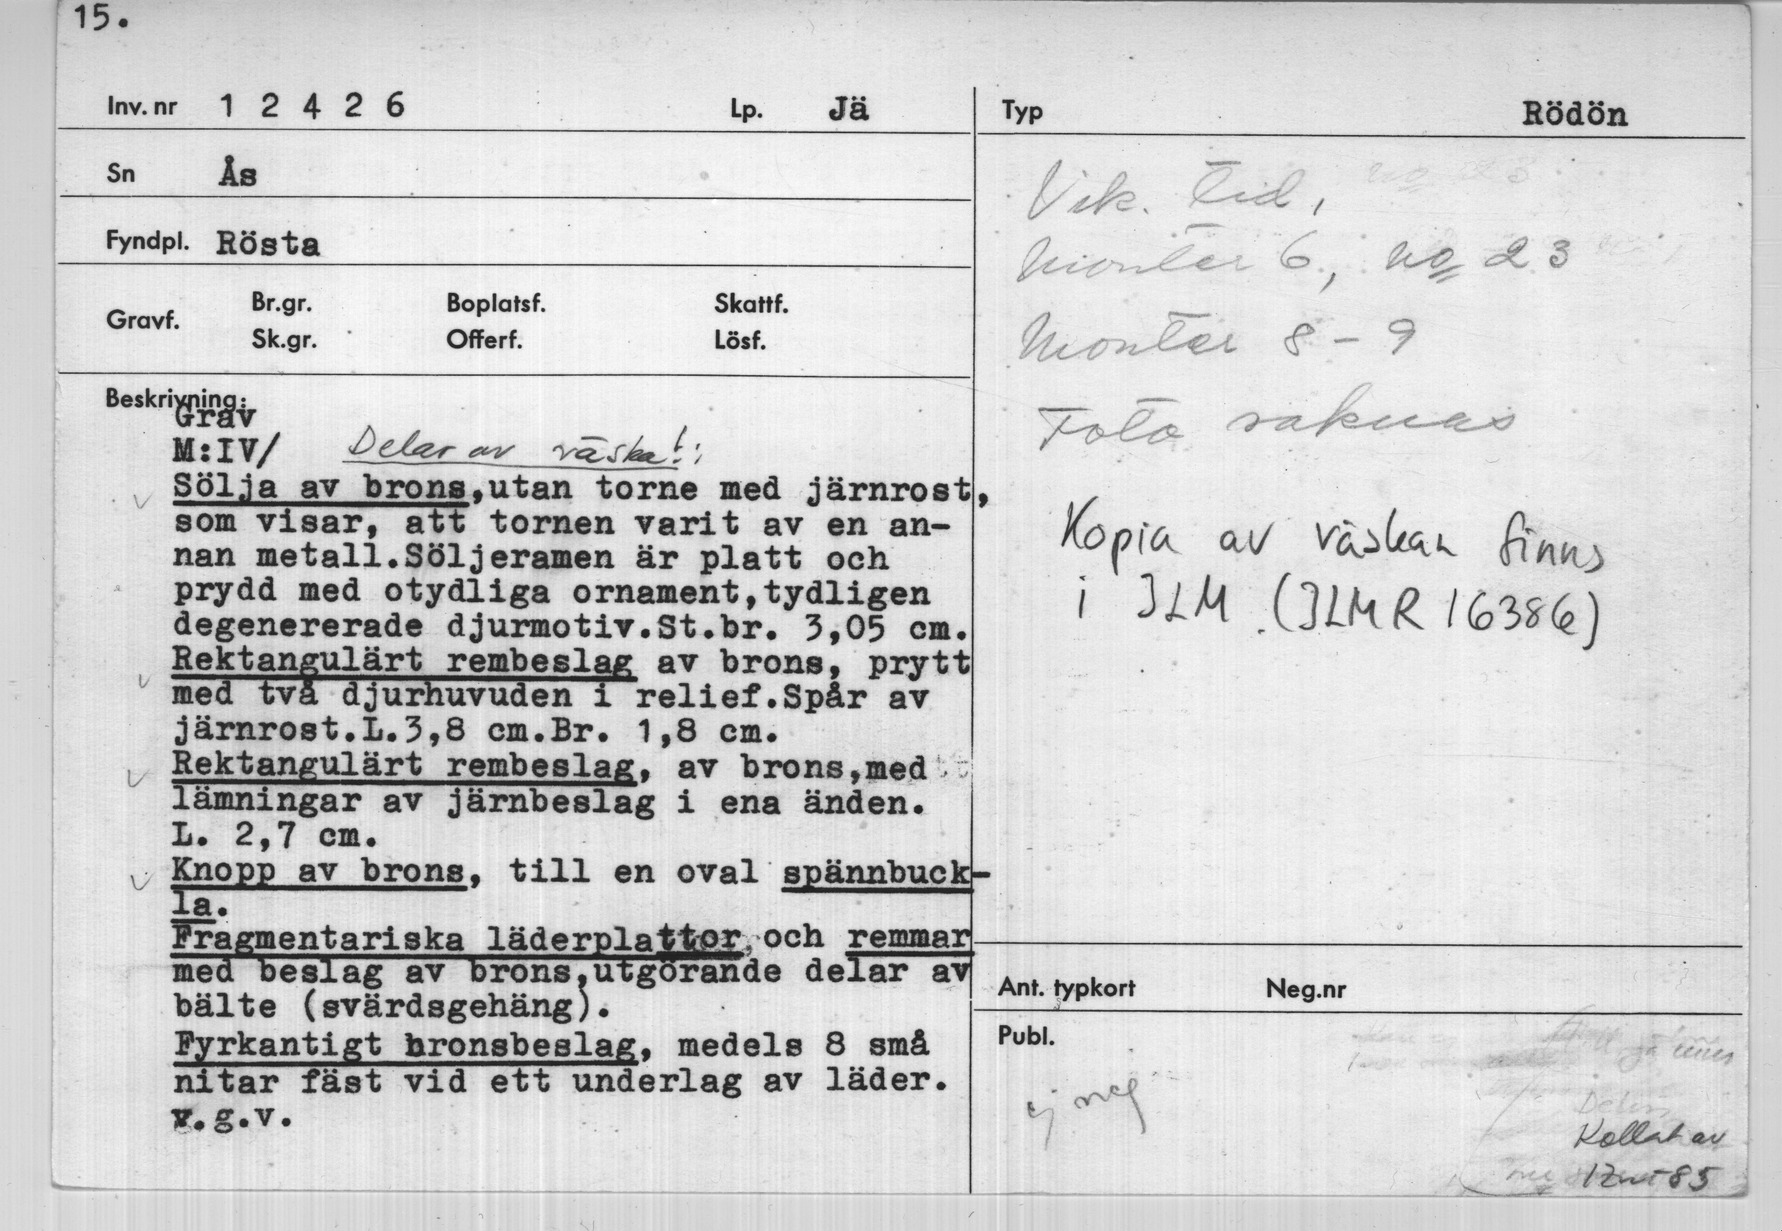 15.
Inv. nr 1 2 4 2 6 Lp. Jä
Sn Ås
Fyndpl. Rösta
Gravf. Br.gr. Boplatsf. Skattf.
Sk.gr. Offerf. Lösf.
Beskrivning:
Grav
M:IV/ Delar av väska!:
Sölja av brons,utan torne med järnrost,
som visar, att tornen varit av en an-
nan metall.Söljeramen är platt och
prydd med otydliga ornament,tydligen
degenererade djurmotiv.St.br. 3,05 cm.
Rektangulärt rembeslag av brons, prytt
med två djurhuvuden i relief.Spår av
järnrost.L.3,8 cm.Br. 1,8 cm.
Rektangulärt rembeslag, av brons,med
lämningar av järnbeslag i ena änden.
L. 2,7 cm.
Knopp av brons, till en oval spännbuck-
la.
Fragmentariska läderplattor och remmar
med beslag av brons,utgörande delar av
bälte (svärdsgehäng).
Fyrkantigt bronsbeslag, medels 8 små
nitar fäst vid ett underlag av läder.
v.g.v.
Typ Rödön
Vik. tid,
Monter 6, no 23
Monter 8-9
Foto saknas
Kopia av väskan finns
i JLM (JLMR 16386)
Ant. typkort Neg.nr
Publ.
ej neg
Kollat av
85